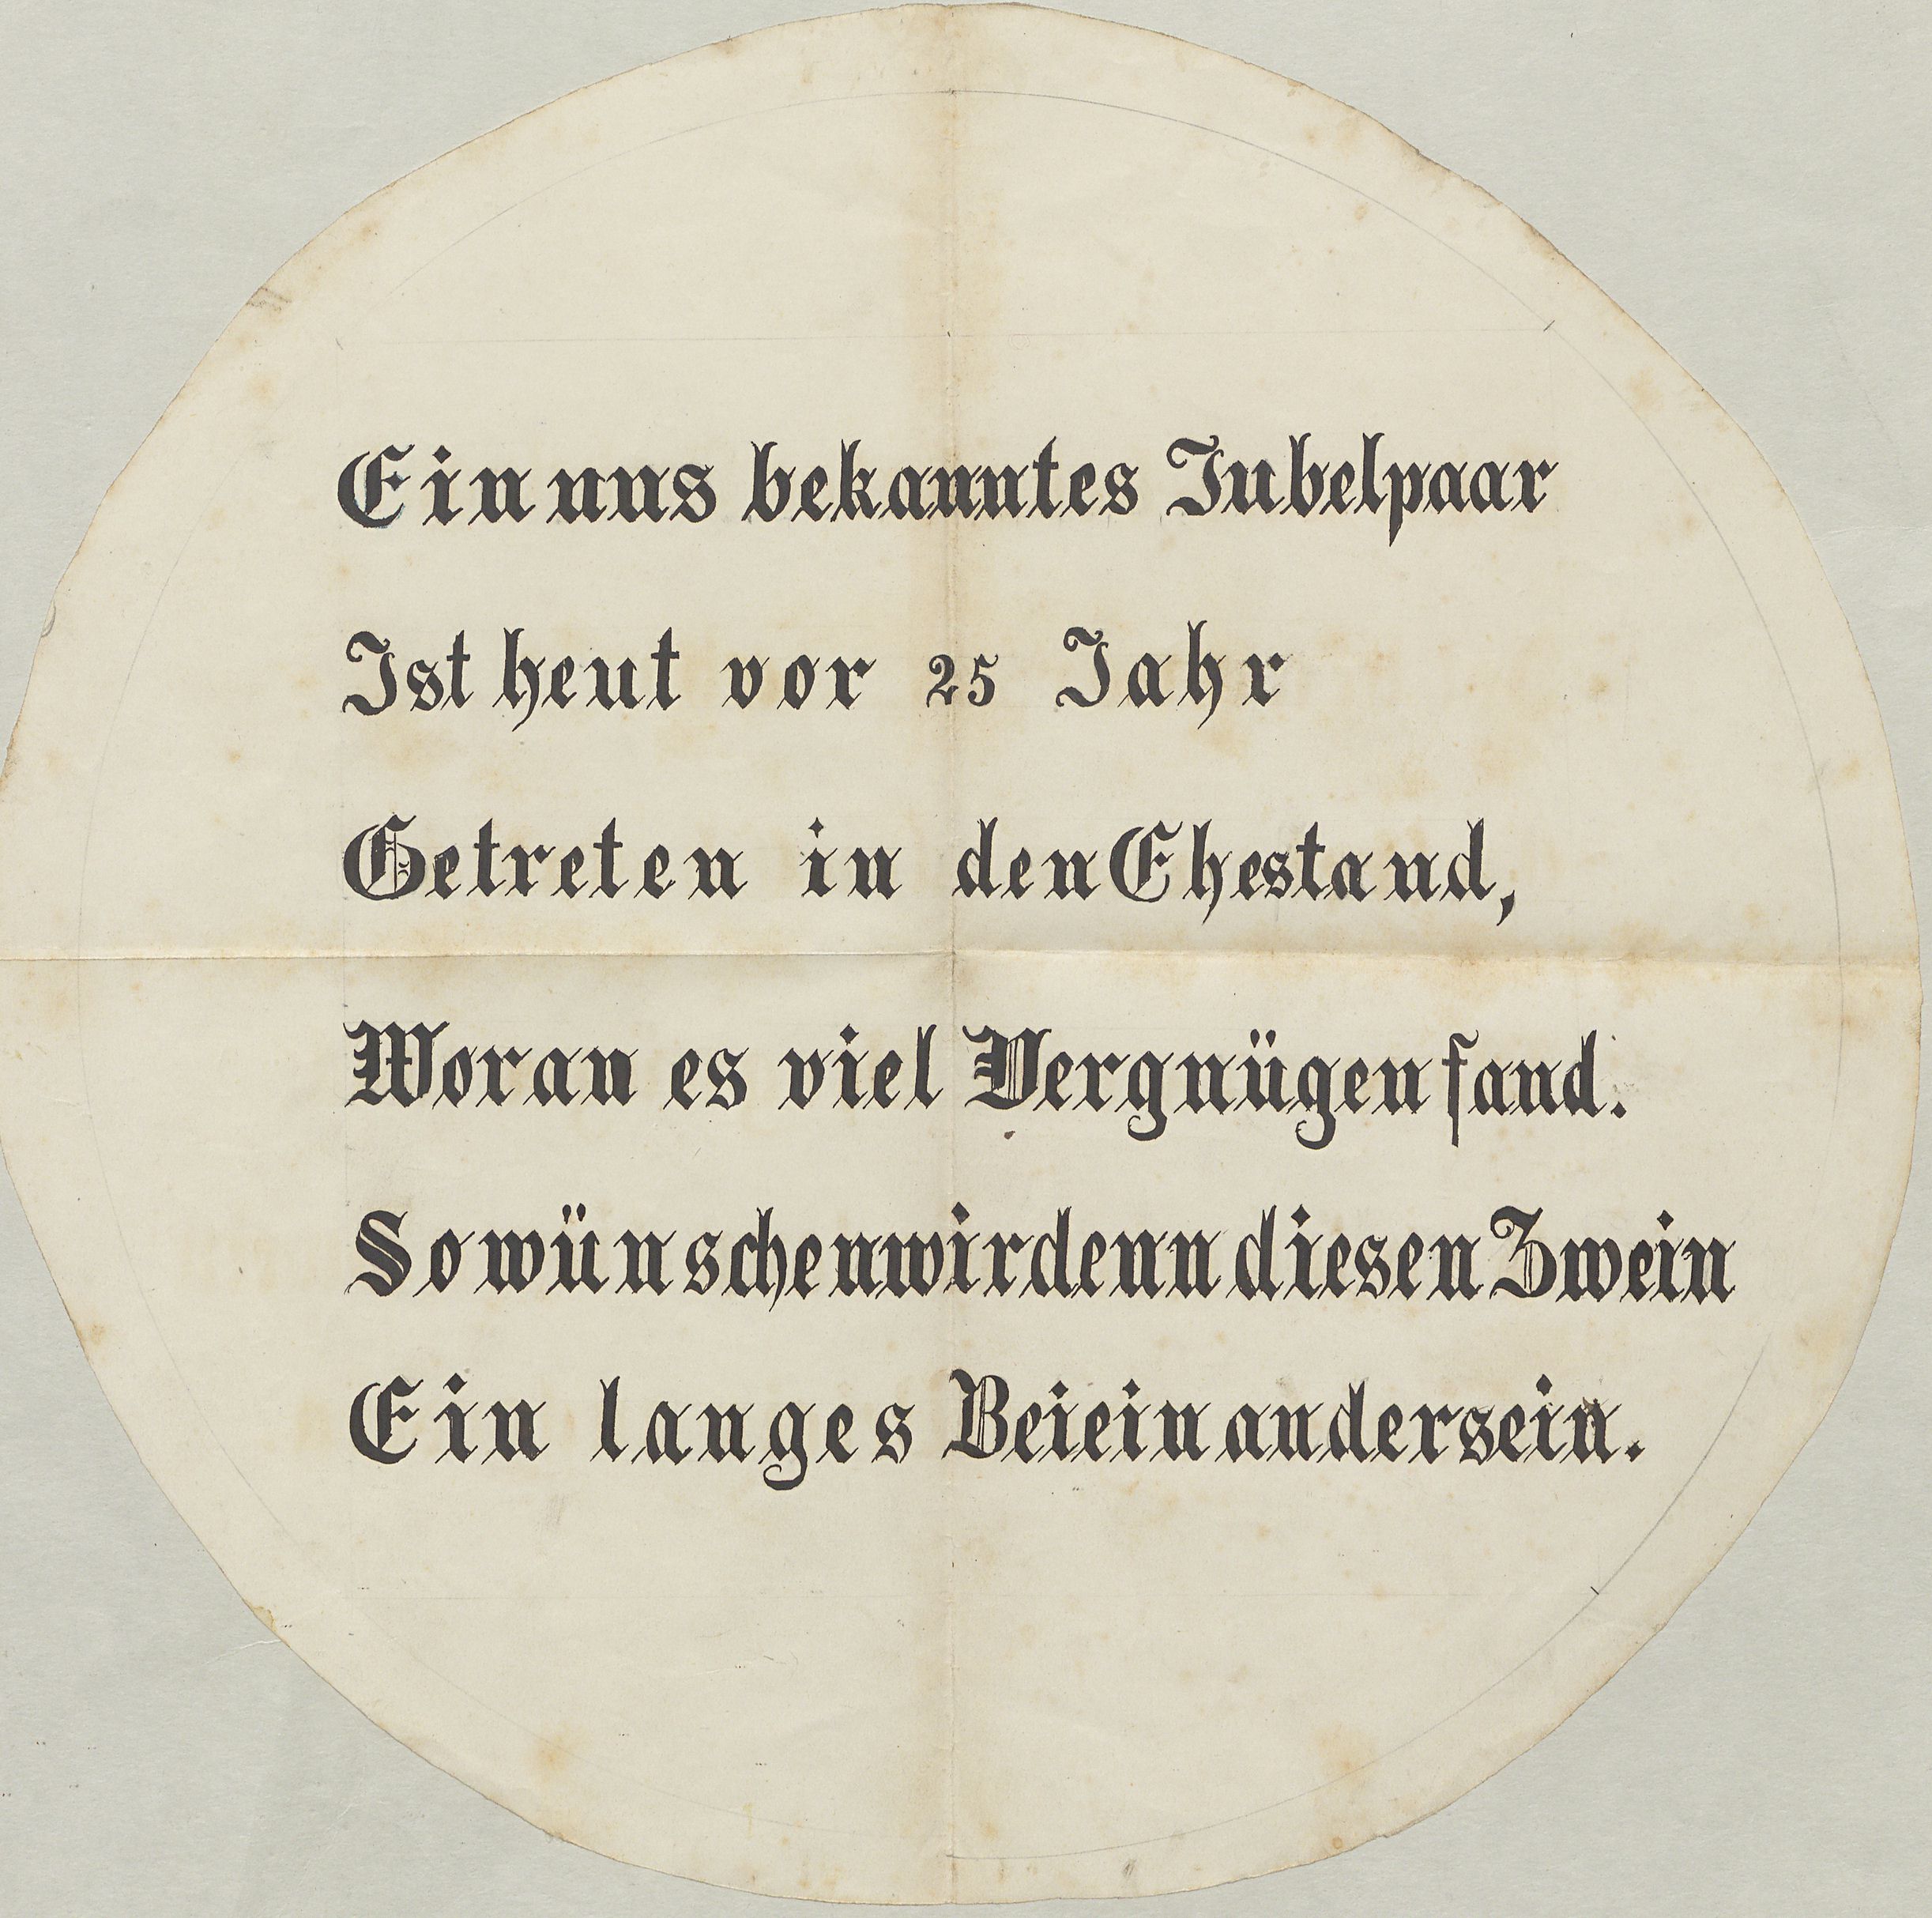 Ein uns bekanntes Jubelpaar
Ist heut vor 25 Jahr
Getreten in den Ehestand,
Woran es viel Vergnügen fand.
So wünschen wir denn diesen Zwein
Ein langes Beieinandersein.